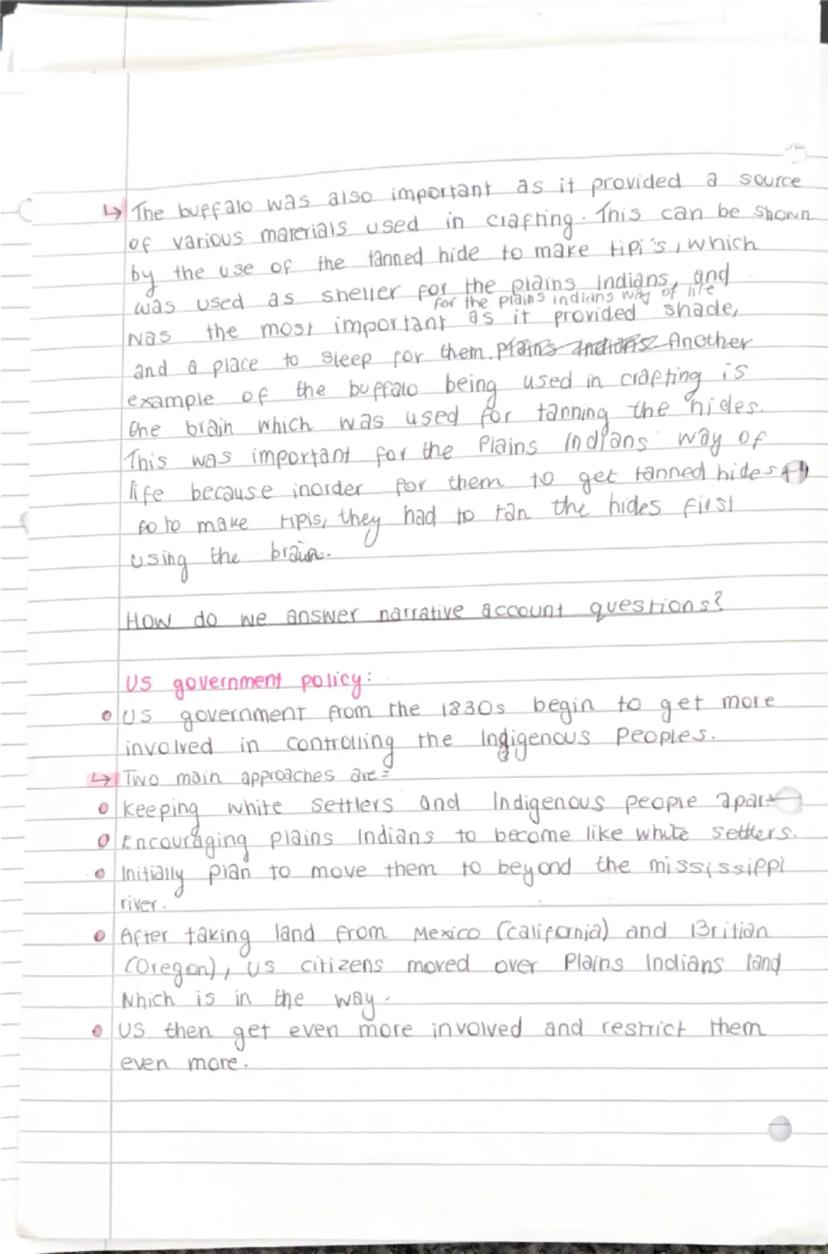 ↳ The buffalo was also important as it provided a source
of various materials used in crafting. This can be shown
by the use of the tanned hide to make tipi's, which
was used as shelter for the plains Indians, and
for the plains indians way of life
was the most important as it provided shade,
and a place to sleep for them. Plains Indians. Another
example of the buffalo being used in crafting is
the brain which was used for tanning the hides.
This was important for the Plains Indians way of
life because inorder for them to get tanned hides
to make tipis, they had to tan the hides first
using the brain.
How do we answer narrative account questions?
US government policy:
• US government from the 1830s begin to get more
involved in controlling the Indigenous Peoples.
↳ Two main approaches are:
• Keeping white settlers and Indigenous people apart
• Encouraging plains Indians to become like white settlers.
• Initially plan to move them to beyond the mississippi
river.
• After taking land from Mexico (California) and Britian
(Oregon), US citizens moved over Plains Indians land
which is in the way.
• US then get even more involved and restrict them
even more.